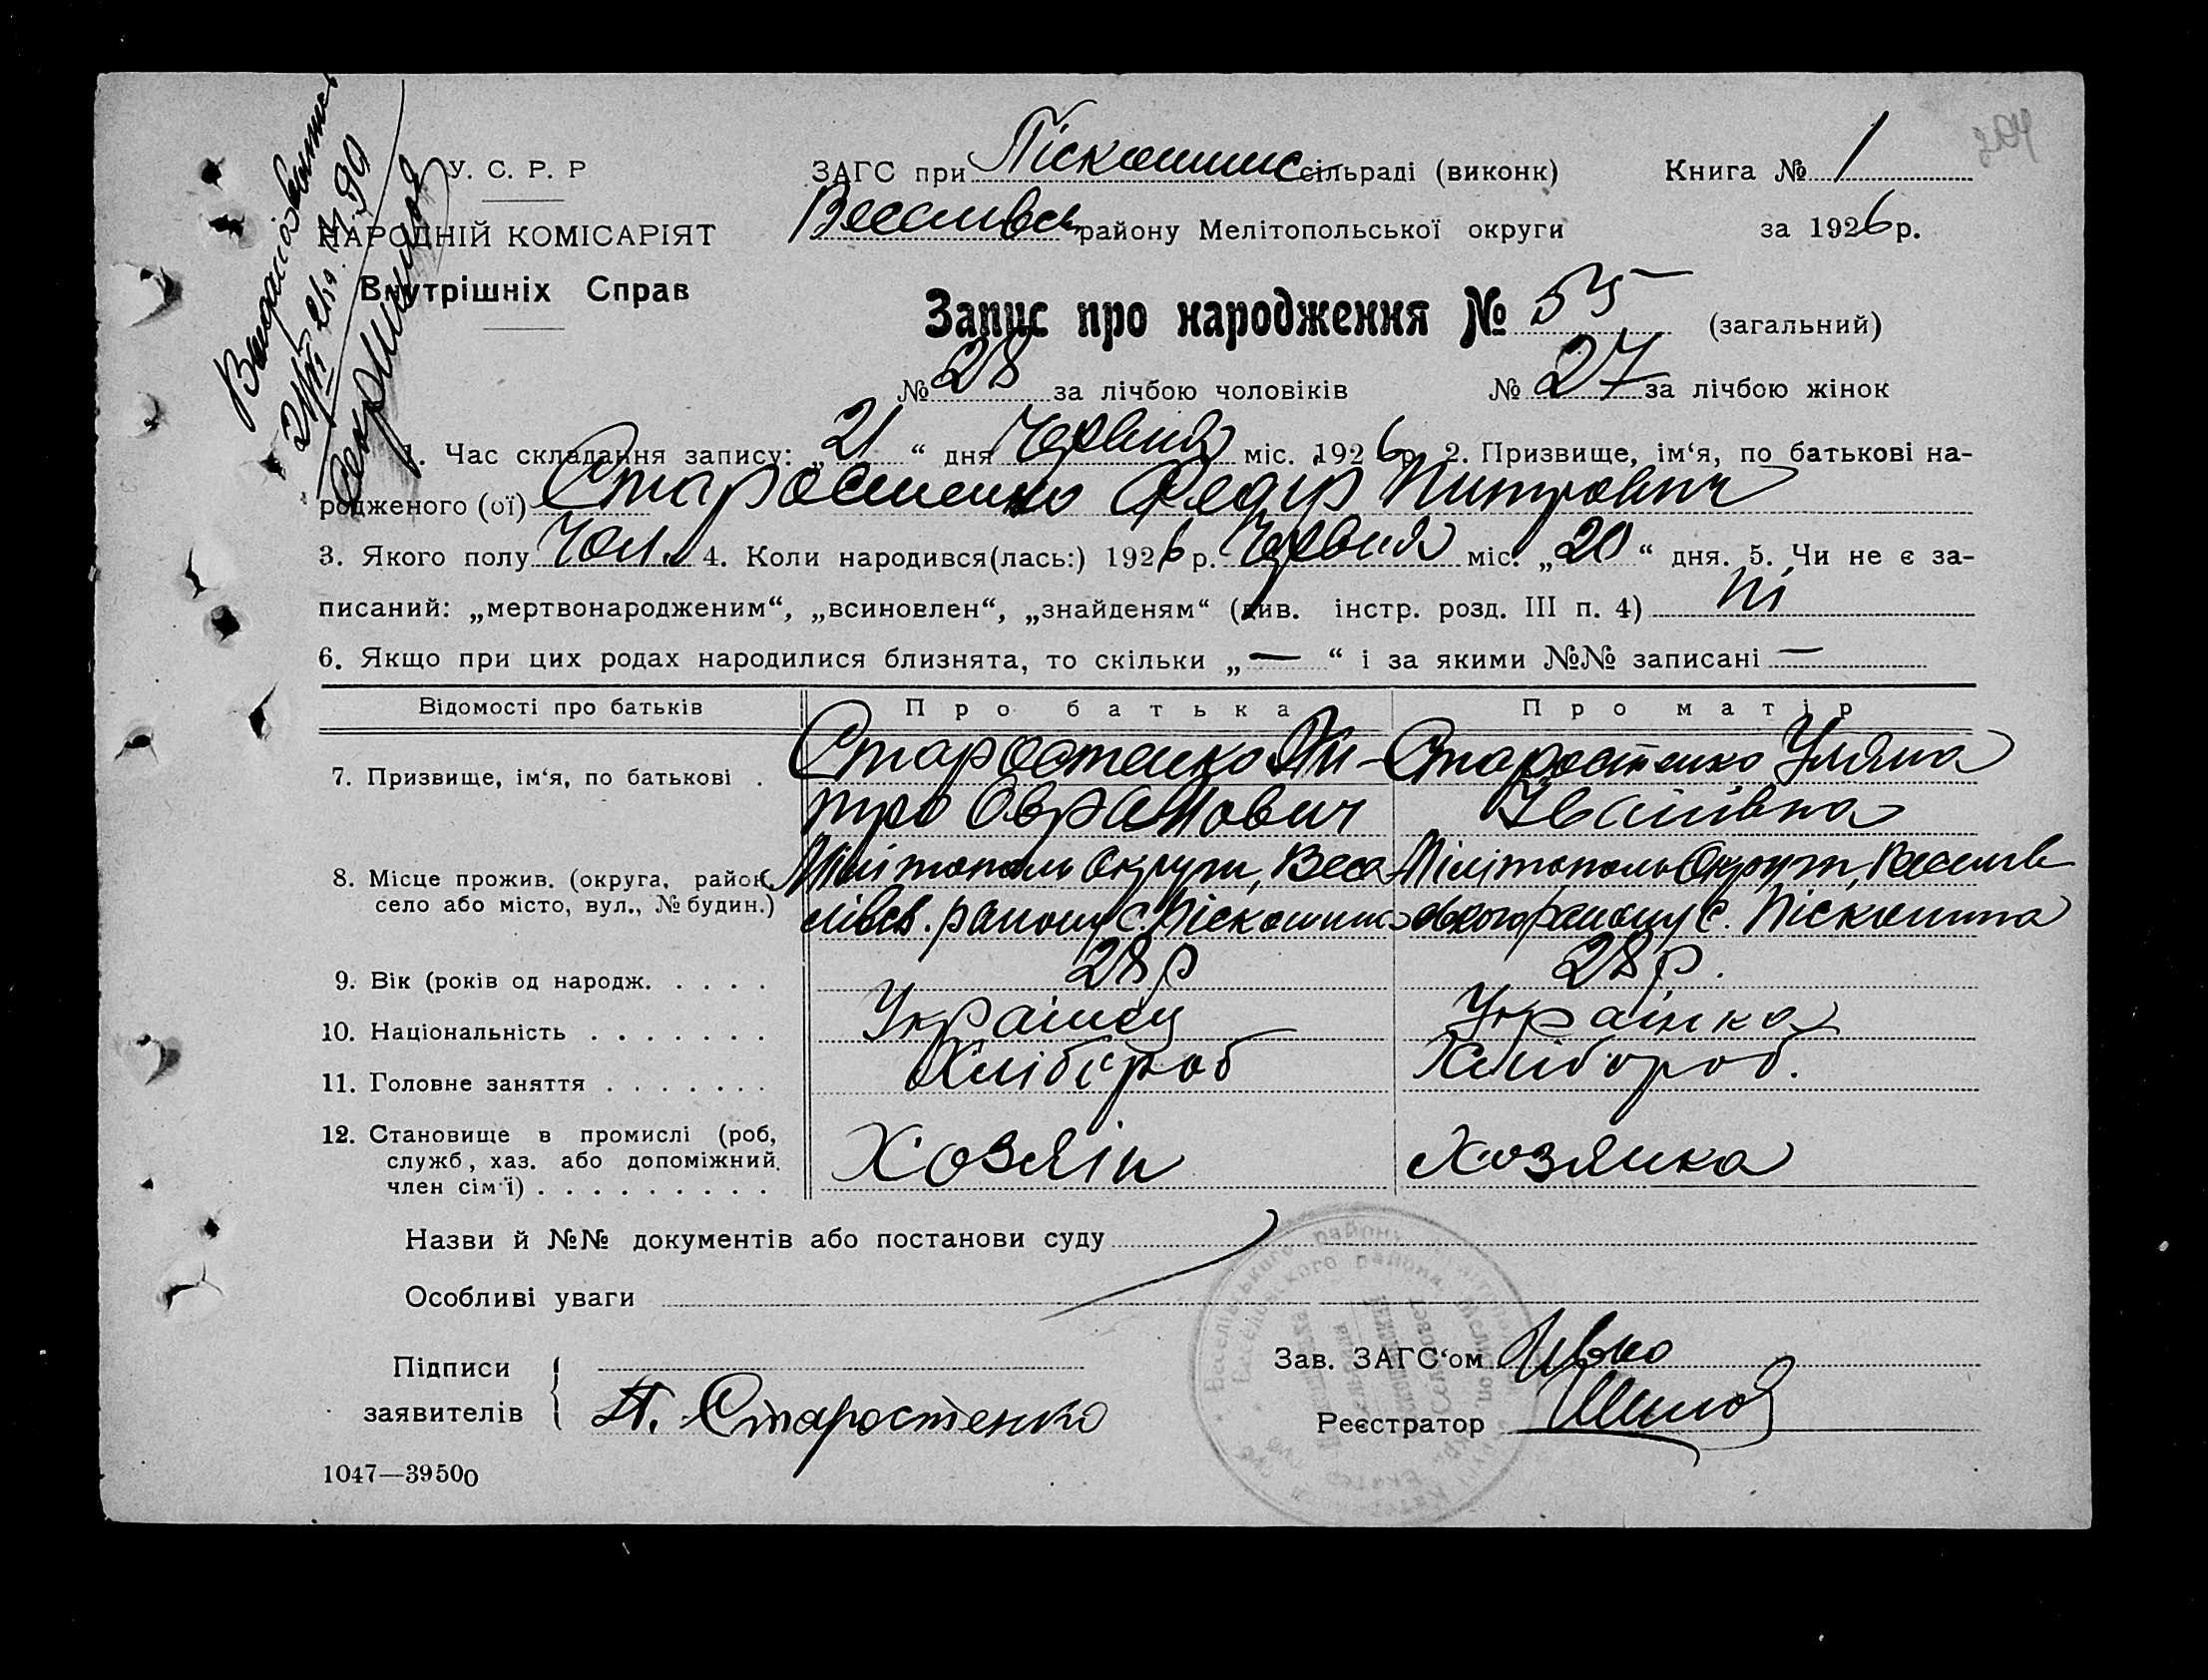 У. С. Р. Р
НАРОДНІЙ КОМІСАРІЯТ
Внутрішніх Справ
ЗАГС при Піскошинс сільраді (виконк)
Книга № 1
Веселивськ району Мелітопольської округи
за 1926 р.
Запис про народження № 55 (загальний)
№ 28 за лічбою чоловіків № 27 за лічбою жінок
1. Час складання запису: „21“ дня Червня міс. 1926 р. 2. Призвище, ім‘я, по батькові на-
родженого (ої) Старостенко Федір Питрович
3. Якого полу Чол. 4. Коли народився(лась:) 1926 р. Червня міс. „20“ дня. 5. Чи не є за-
писаний: „мертвонародженим“, „всиновлен“, „знайденям“ (див. інстр. розд. III п. 4) ні
6. Якщо при цих родах народилися близнята, то скільки „—“ і за якими №№ записані —
Відомості про батьків Про батька Про матір
7. Призвище, ім‘я, по батькові . Старостенко Пи- Старостенко Уляна
тро Оврамович Іванівна
8. Місце прожив. (округа, район, Мілітополь Округи, Весе Мілітополь Округи, Веселів
село або місто, вул., № будин.) лівсв. району с. Піскошина ського району с. Піскошина
9. Вік (років од народж. . . . . 28 р 28 р.
10. Національність . . . . . . . Украінец Украінка
11. Головне заняття . . . . . . . Хлібороб Хлібороб.
12. Становище в промислі (роб,
служб, хаз. або допоміжний Хозяін Хозяйка
член сім‘ї) . . . . . . . . .
Назви й №№ документів або постанови суду
Особливі уваги
Підписи
заявителів П. Старостенко
Зав. ЗАГС‘ом
Реєстратор
1047—39500